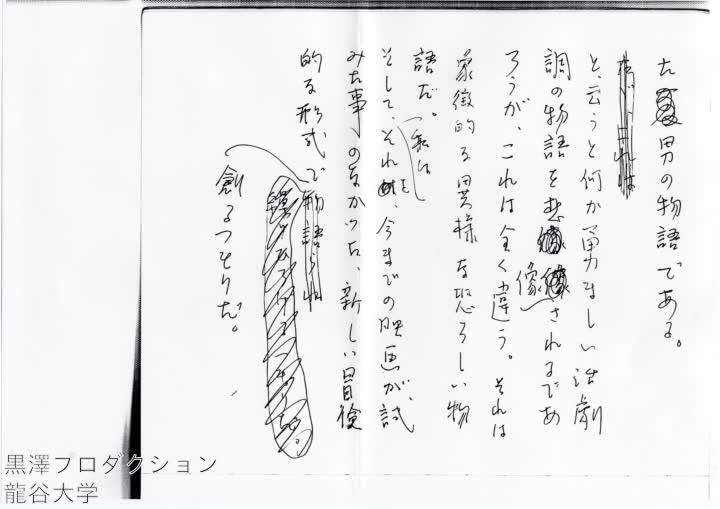 た男の物語である。
と、云うと何か勇ましい活劇
調の物語を想像されるであ
ろうが、これは全く違う。それは
象徴的な異様な恐ろしい物
語だ。
そして、私はそれを、今までの映画が、試
みた事のなかった、新しい冒険
的な形式で
創るつもりだ。
黒澤プロダクション
龍谷大学